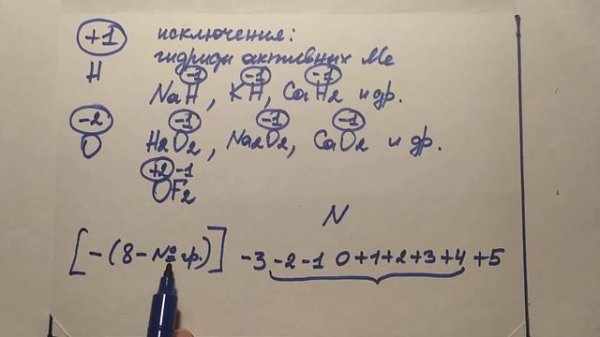 +1 исключения:
H гидриды активных Ме
-1 -1 -1
NaH, KH, CaH2 и др.
-2 -1 -1 -1
O H2O2, Na2O2, CaO2 и др.
+2 -1
OF2
N
[-(8-№гр.)] -3 -2 -1 0 +1 +2 +3 +4 +5